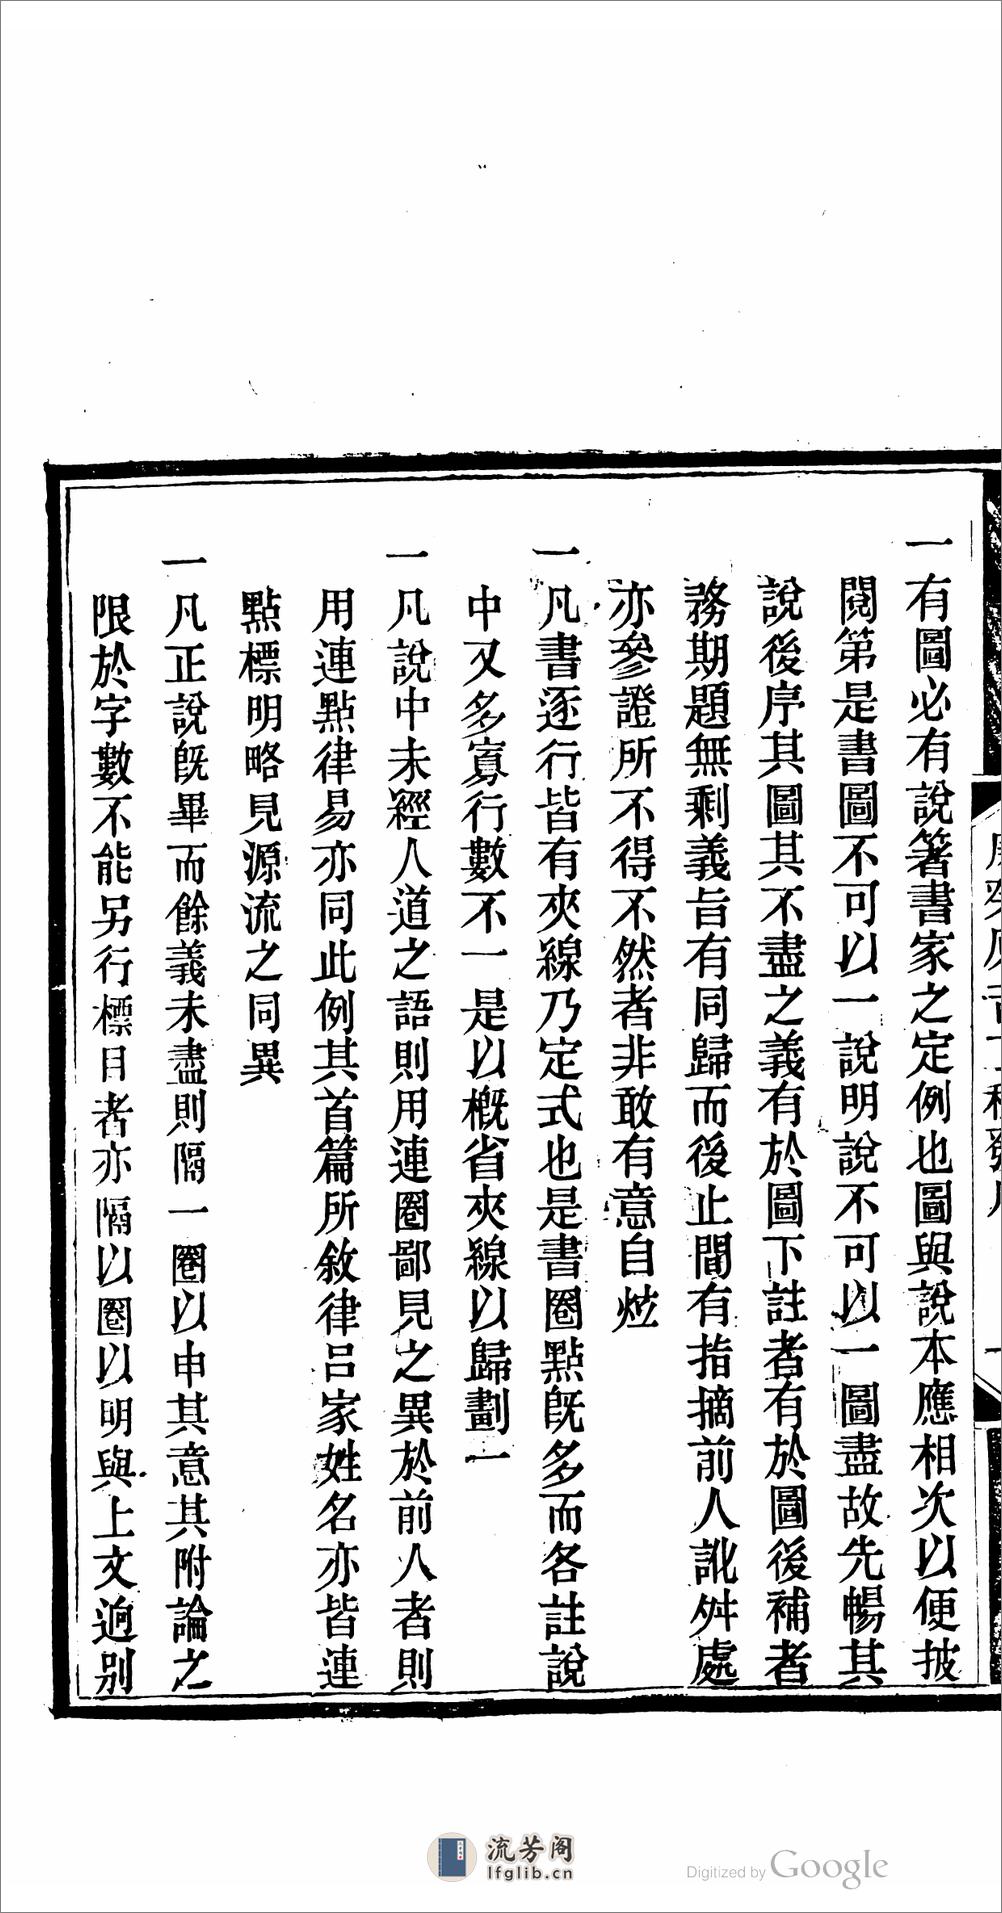 一有圖必有說箸書家之定例也圖與說本應相次以便披
閱第是書圖不可以一說明說不可以一圖盡故先暢其
說後序其圖其不盡之義有於圖下註者有於圖後補者
務期題無剩義旨有同歸而後止間有指摘前人訛舛處
亦參證所不得不然者非敢有意自炫
一凡書逐行皆有夾線乃定式也是書圈點旣多而各註說
中又多寡行數不一是以槪省夾線以歸劃一
一凡說中未經人道之語則用連圈鄙見之異於前人者則
用連點律易亦同此例其首篇所敘律呂家姓名亦皆連
點標明略見源流之同異
一凡正說旣畢而餘義未盡則隔一圈以申其意其附論之
限於字數不能另行標目者亦隔以圈以明與上文逈別
流芳阁
lfglib.cn
Digitized by Google